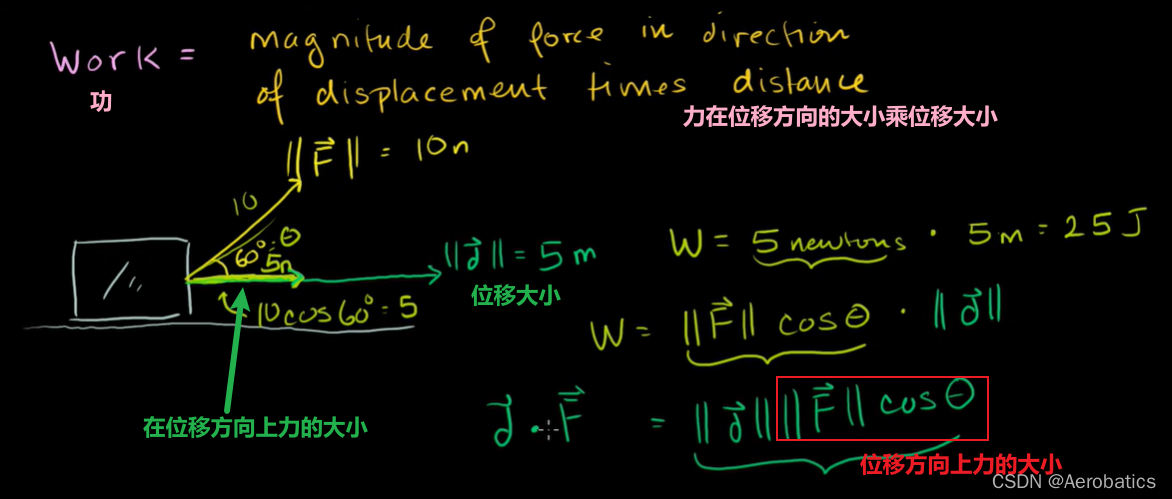 Work = magnitude of force in direction
of displacement times distance
功
力在位移方向的大小乘位移大小
||F⃗|| = 10n
10
60° = θ
5n
||d⃗|| = 5m
位移大小
10cos60° = 5
在位移方向上力的大小
W = 5 newtons · 5m = 25 J
W = ||F⃗|| cosθ · ||d⃗||
d⃗ · F⃗ = ||d⃗|| ||F⃗|| cosθ
位移方向上力的大小
CSDN @Aerobatics